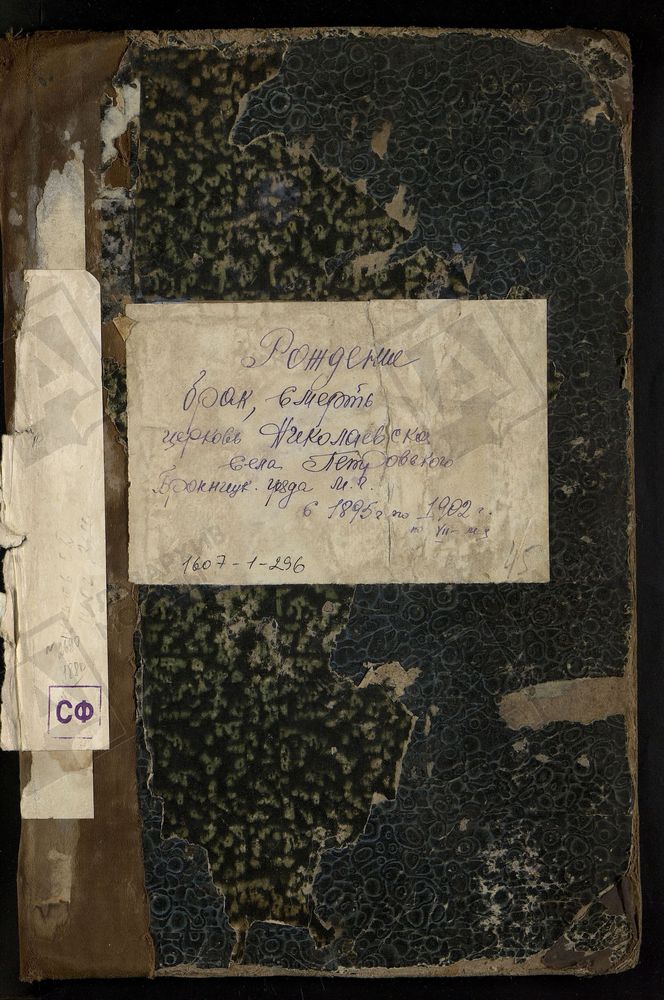 Рождение
брак, смерть
церковь Николаевска
села Петровского
Бронницк. уезда м.г.
с 1895 г по 1902 г.
по VII - м-ц
1607-1-296
45
СФ